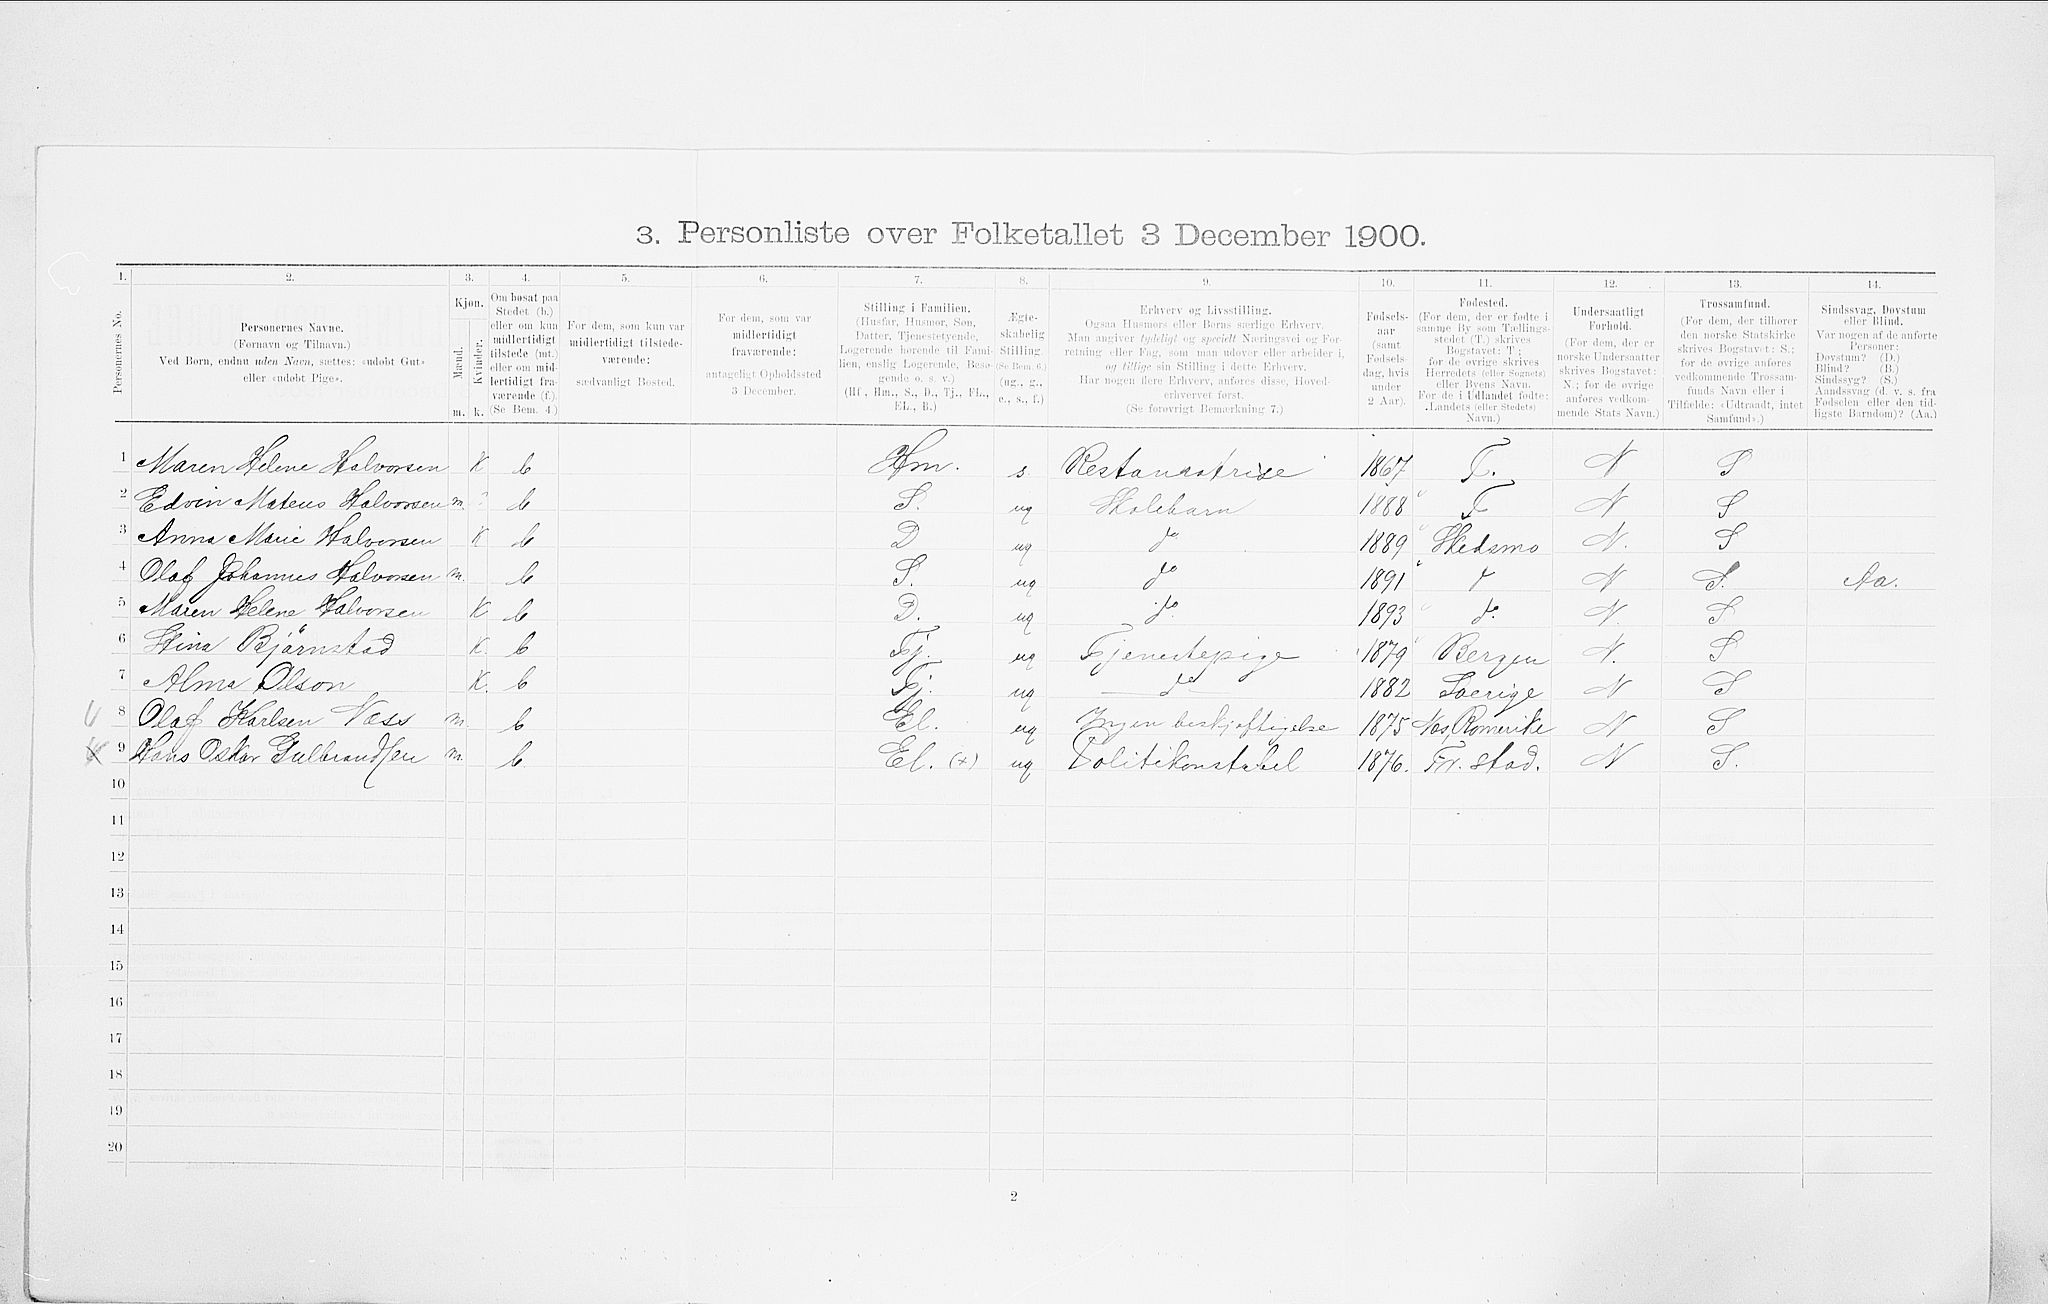 3. Personliste over Folketallet 3 December 1900.
1. 2. 3. 4. 5. 6. 7. 8. 9. 10. 11. 12. 13. 14.
Personernes No.
Personernes Navne.
(Fornavn og Tilnavn.)
Ved Børn, endnu uden Navn, sættes: «udøbt Gut»
eller «udøbt Pige».
Kjøn.
Mænd.
Kvinder.
m. k.
Om bosat paa
Stedet (b.)
eller om kun
midlertidigt
tilstede (mt.)
eller om mid-
lertidigt fra-
værende (f.)
(Se Bem. 4.)
For dem, som kun var
midlertidigt tilstede-
værende:
sædvanligt Bosted.
For dem, som var
midlertidigt
fraværende:
antageligt Opholdssted
3 December.
Stilling i Familien.
(Husfar, Husmor, Søn,
Datter, Tjenestetyende,
Logerende hørende til Fami-
lien, enslig Logerende, Besø-
gende o. s. v.)
(Hf., Hm., S., D., Tj., FL.,
EL., B.)
Ægte-
skabelig
Stilling.
(Se Bem. 6.)
(ug., g.,
e., s., f.)
Erhverv og Livsstilling.
Ogsaa Husmors eller Børns særlige Erhverv.
Man angiver tydeligt og specielt Næringsvei og For-
retning eller Fag, som man udøver eller arbeider i,
og tillige sin Stilling i dette Erhverv.
Har nogen flere Erhverv, anføres disse, Hoved-
erhvervet først.
(Se forøvrigt Bemærkning 7.)
Fødsels-
aar
(samt
Fødsels-
dag, hvis
under
2 Aar).
Fødested.
(For dem, der er fødte i
samme By som Tællings-
stedet (T.) skrives
Bogstavet: T;
for de øvrige skrives
Herredets (eller Sognets)
eller Byens Navn.
For de i Udlandet fødte:
Landets (eller Stedets)
Navn.)
Undersaatligt
Forhold.
(For dem, der er
norske Undersaatter
skrives Bogstavet:
N.; for de øvrige
anføres vedkom-
mende Stats Navn.)
Trossamfund.
(For dem, der tilhører
den norske Statskirke
skrives Bogstavet: S.;
for de øvrige anføres
vedkommende Trossam-
funds Navn eller i
Tilfælde: «Udtraadt, intet
Samfund».)
Sindssvag, Døvstum
eller Blind.
Var nogen af de anførte
Personer:
Døvstum? (D.)
Blind? (B.)
Sindssyg? (S.)
Aandssvag (d. v. s. fra
Fødselen eller den tid-
ligste Barndom)? (Aa.)
1 Maren Helene Halvorsen K b Hm. s. Restauratrise 1867 T. N S
2 Edvin Mateus Halvorsen m. b S. ug Skolebarn 1888 T N S
3 Anna Marie Halvorsen K b D ug do 1889 Skedsmo N. S
4 Olaf Johannes Halvorsen m. b S. ug do 1891 d N S. Aa.
5 Maren Helene Halvorsen K b D. ug do 1893 do N. S
6 Stina Bjørnstad K. b Tj. ug Tjenestepige 1879 Bergen N. S
7 Alma Olson K. b Tj. ug do 1882 Sverige N S
8 Olaf Karlsen Næss m. b El. ug Ingen beskjæftigelse 1875 Nes, Romerike N S
9 Hans Oskar Gulbrandsen m. b. El. (x) ug Politikonstabel 1876. Fr. stad. N S.
10
11
12
13
14
15
16
17
18
19
20
2